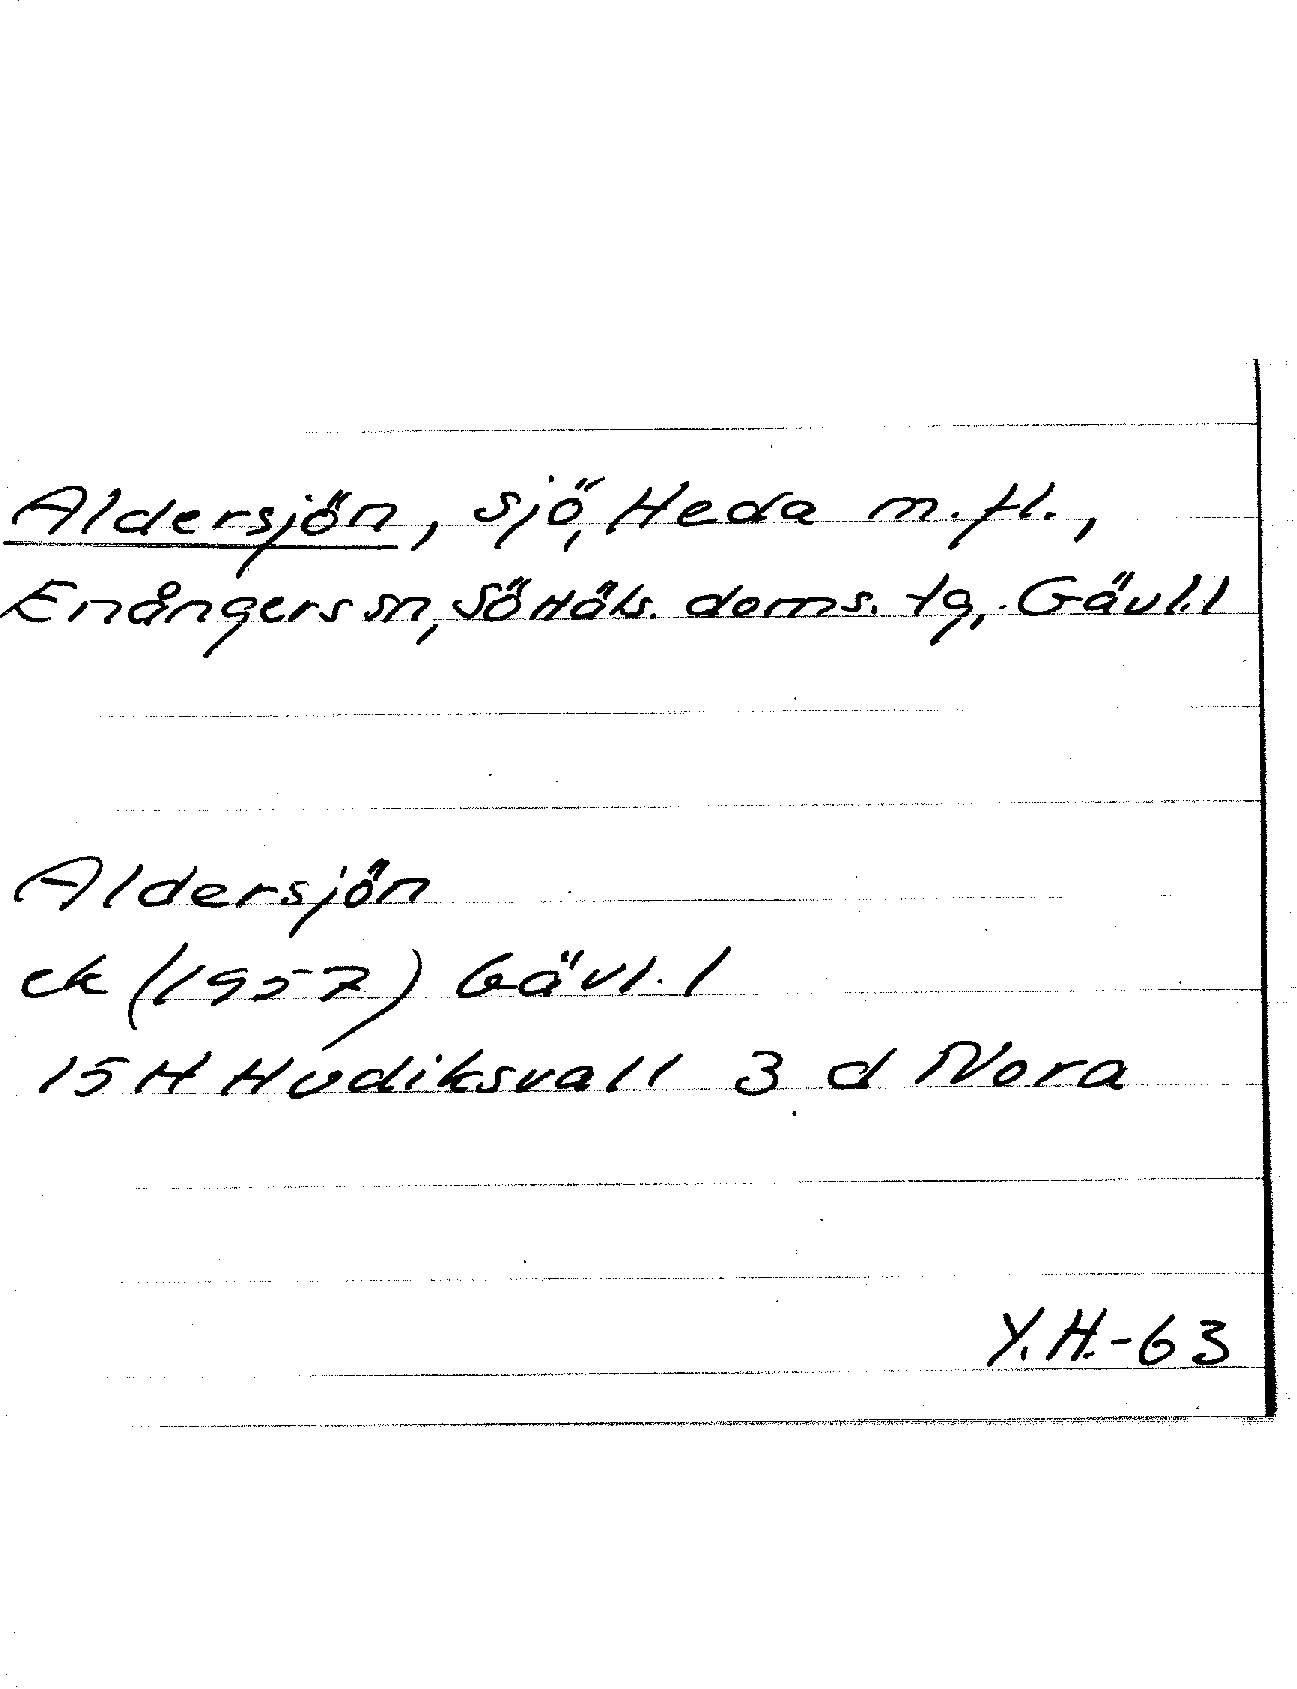 Aldersjön, sjö, Heda m.fl.,
Enångers sn, SöHäls. doms. tg, Gävl.l
Aldersjön
ek (1957) Gävl.l
15H Hudiksvall 3 d Nora
Y.H.-63